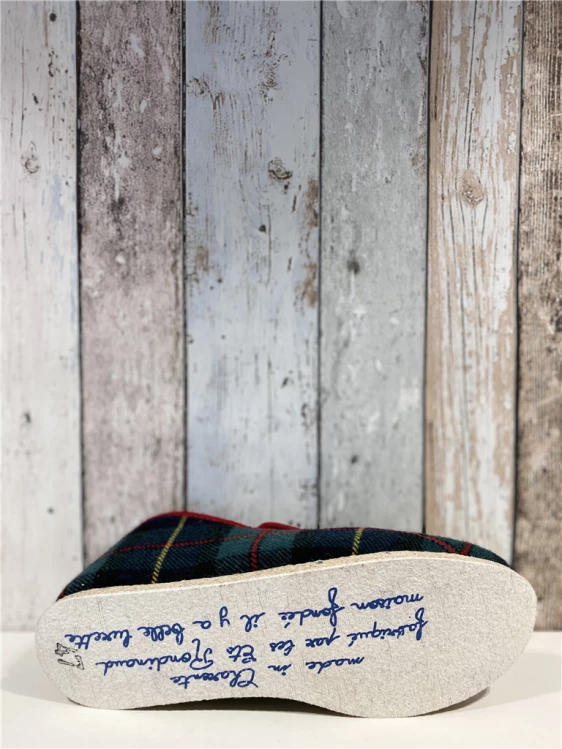 made in Charente
fabriqué par les Ets Rondinaud
maison fondée il y a belle lurette
47